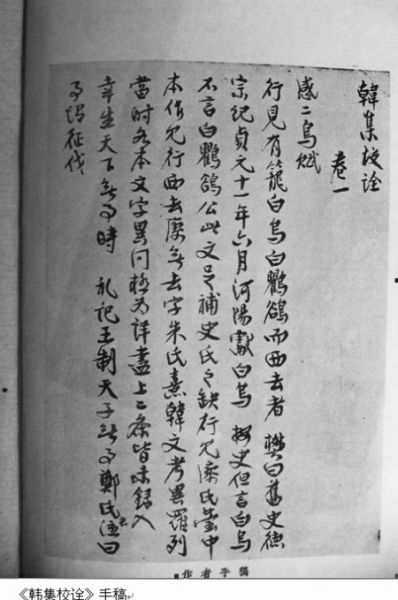 韓集校詮
卷一
感二鳥賦
行見有籠白烏白鸜鵒而西去者 樊曰舊史德
宗紀貞元十一年六月河陽獻白烏 按史但言白烏
不言白鸜鵒公此文足補史氏之缺行見潘氏雲中
本作見行西去麼無去字朱氏熹韓文考異羅列
當时各本文字異同極为詳盡上二条皆未録入
幸生天下無事時 礼记王制天子無事鄭氏注曰
事谓征伐
作者手稿
《韩集校诠》手稿